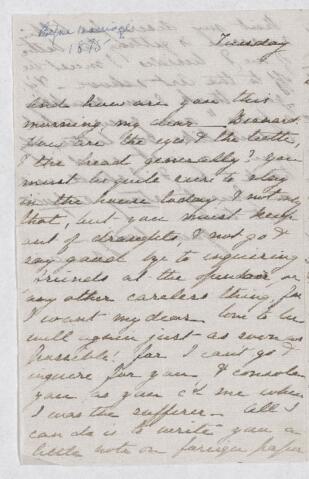 Before marriage
1875
Tuesday
And how are you this
morning my dear Bernard.
How are the eyes & the teeth,
& the head generally? you
must be quite sure to stay
in the house today & not only
that, but you must keep
out of draughts, & not go &
say good bye to inquiring
friends at the front door, or
any other careless thing, for
I want my dear love to be
well again just as soon as
possible! for I can't go &
inquire for you & console
you, as you cd me when
I was the sufferer – All I
can do is to write you a
little note on foreign paper